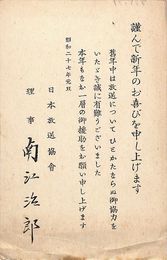 謹んで新年のお喜びを申し上げます
舊年中は放送について ひとかたならぬ御協力を
いたゞき誠に有難うございました
本年もなお一層の御援助をお願い申し上げます
昭和二十七年元旦
日本放送協會
理事 南江治郎